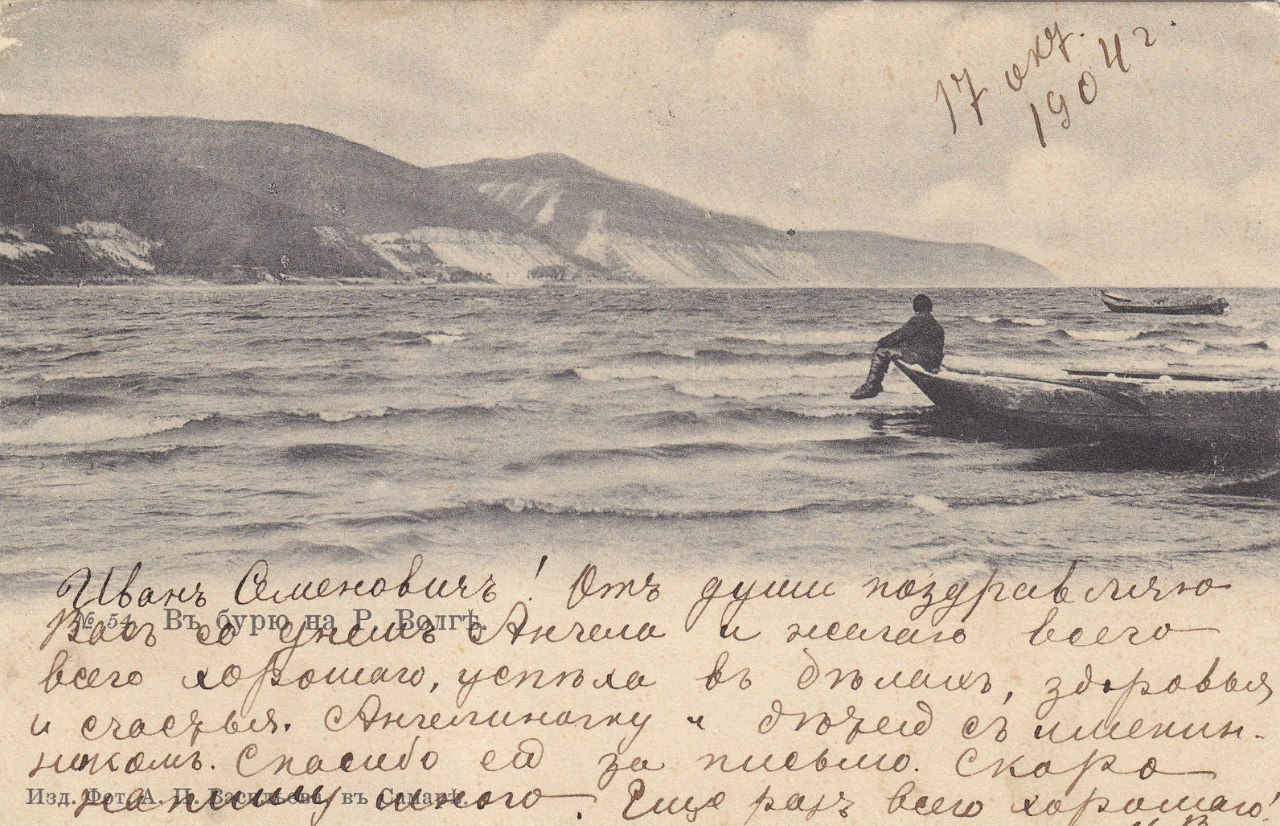 17 окт.
1904 г
Иванъ Семеновичъ! Отъ души поздравляю
№ 54. Въ бурю на Р. Волгѣ.
Васъ со днемъ Ангела и желаю всего
всего хорошаго, успѣха въ дѣлахъ, здоровья
и счастья. Ангелиночку и дѣтей съ имянин-
никомъ. Спасибо ей за письмо. Скоро
Изд. Фот. А. П. Васильева, въ Самарѣ.
напишу много. Еще разъ всего хорошаго!